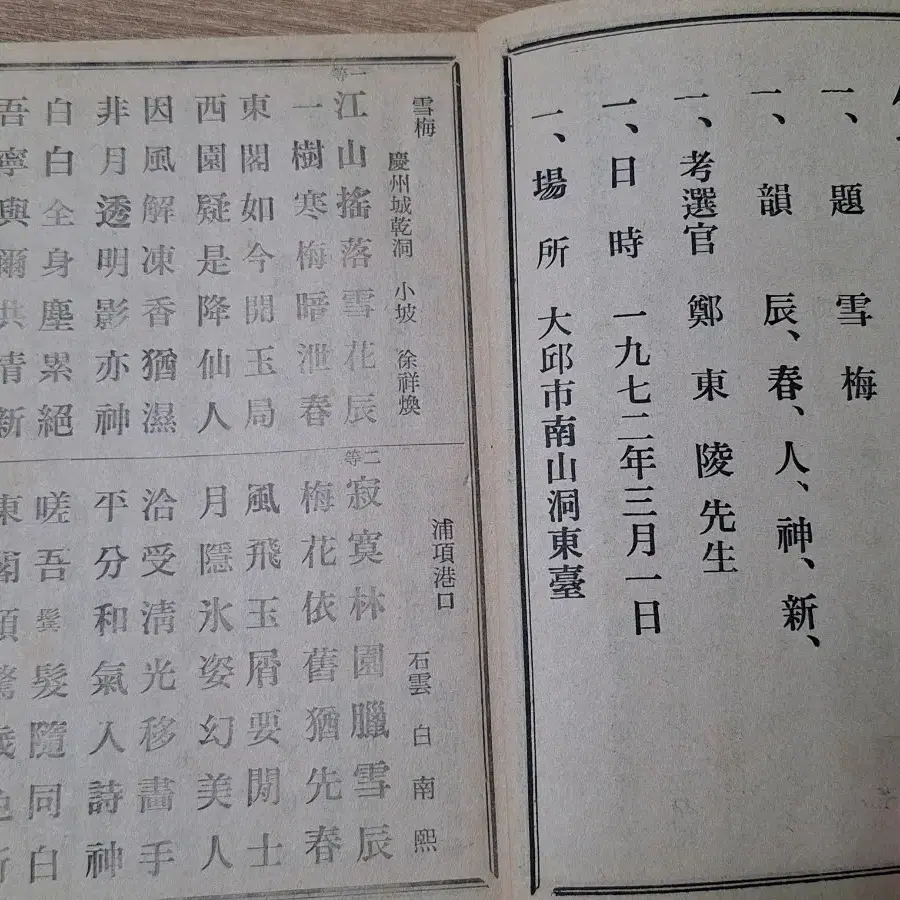 一、題 雪梅
一、韻 辰、春、人、神、新、
一、考選官 鄭東陵先生
一、日時 一九七二年三月一日
一、場所 大邱市南山洞東臺
雪梅 慶州城乾洞 小坡 徐祥煥
一等
江山搖落雪花辰
一樹寒梅暗泄春
東閣如今開玉局
西園疑是降仙人
因風解凍香猶濕
非月透明影亦神
白白全身塵累絕
吾寧與爾共新
浦項港口 石雲 白南熙
二等
寂寞林園臘雪辰
梅花依舊猶先春
風飛玉屑要閒士
月隱氷姿幻美人
洽受清光移畵手
平分和氣入詩神
嗟吾鬢髮隨同白
東閣